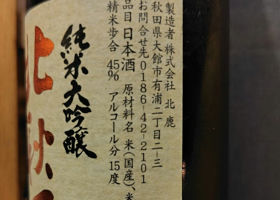 製造者 株式会社 北鹿
秋田県大館市有浦二丁目二-三
お問合せ先 0186-42-2101
品目 日本酒 原材料名 米(国産)、米
精米歩合 45% アルコール分 15度
純米大吟醸
北秋